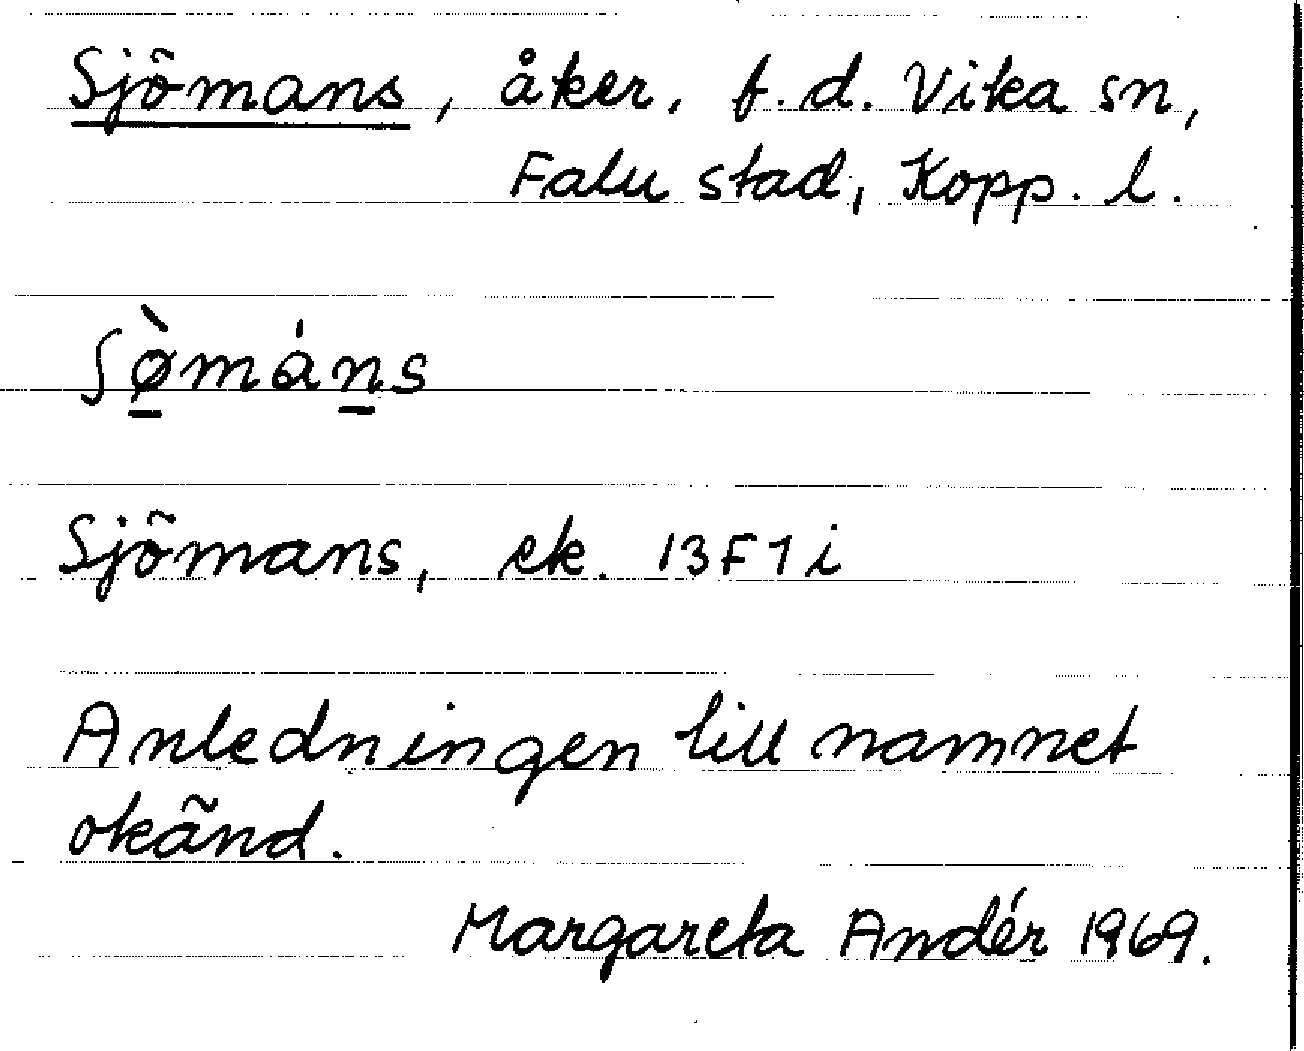 Sjömans, åker, f.d. Vika sn,
Falu stad, Kopp. l.
ʃø̠̀mȧn̠s
Sjömans, ek. 13F7i
Anledningen till namnet
okänd.
Margareta Andér 1969.